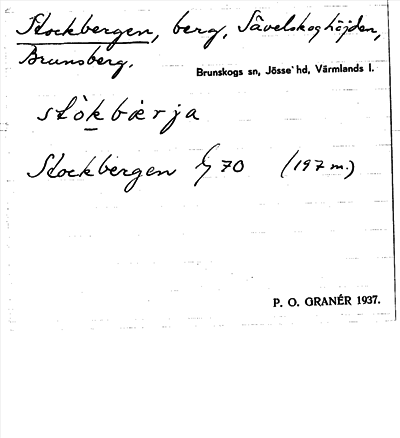 Stockbergen, berg, Sävelskoghöjden,
Brunsberg.
Brunskogs sn, Jösse hd, Värmlands l.
stòkbærja
Stockbergen 70 (197 m.)
P. O. GRANÉR 1937.